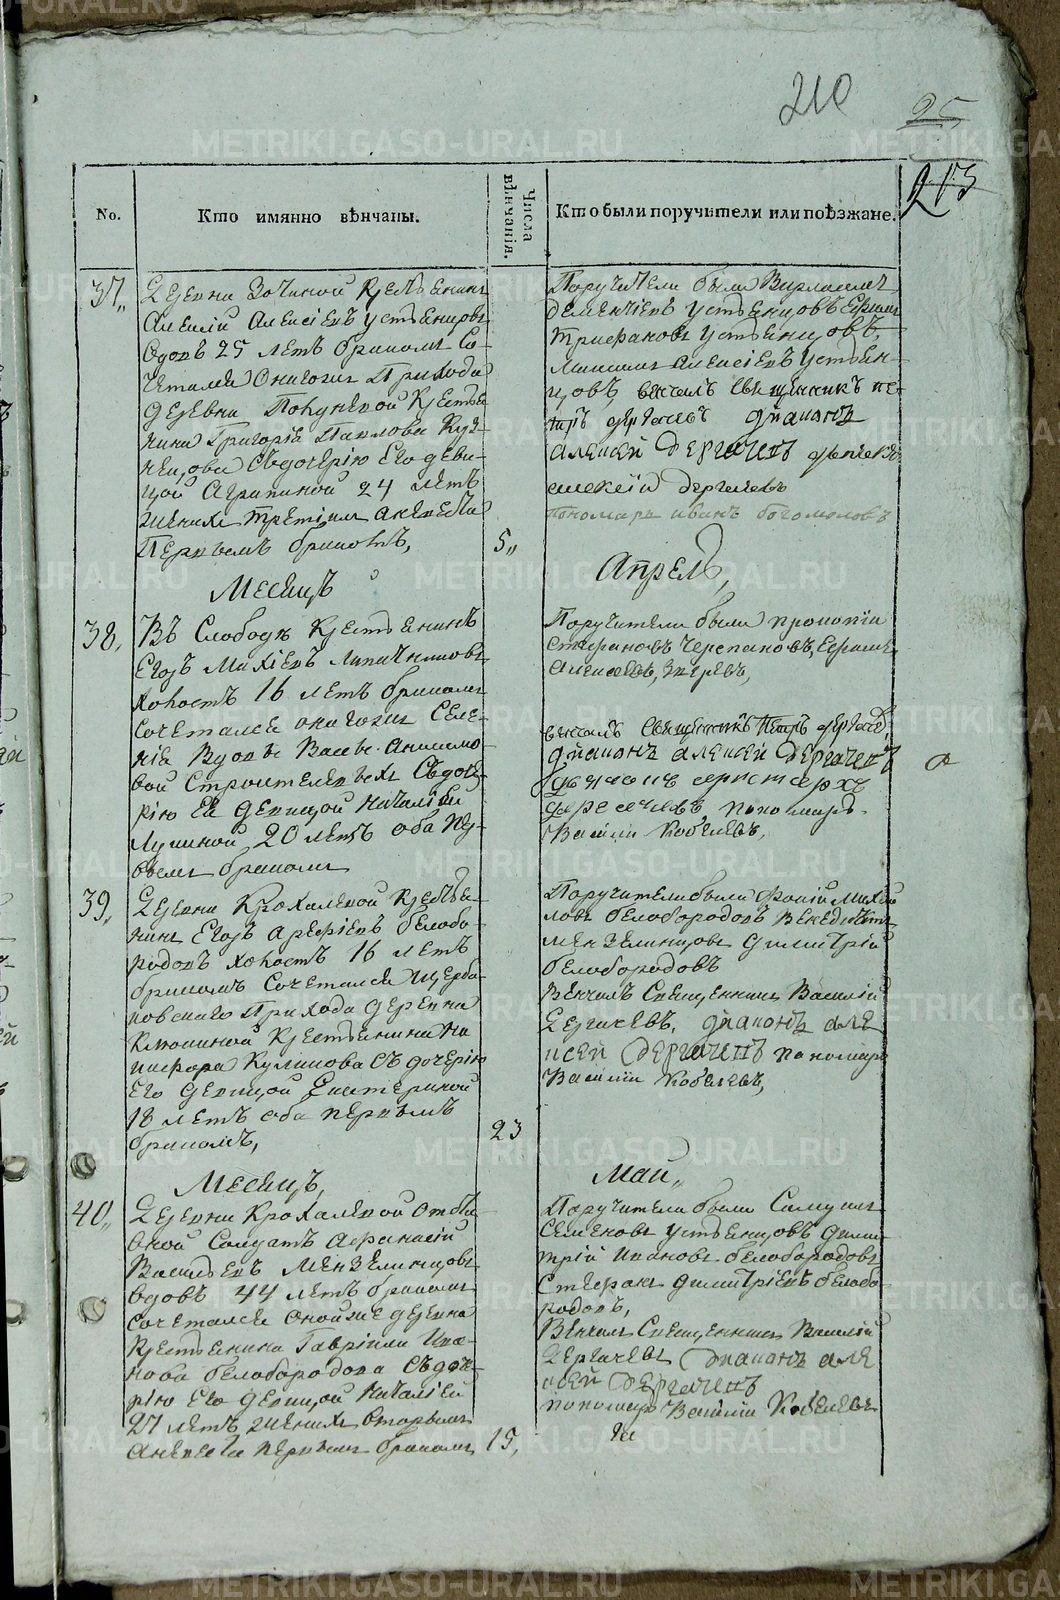 210
25
213
No.
Кто имянно вѣнчаны.
Числа вѣнчанія.
Кто были поручители или поѣзжане.
37,,
Деревни Зотиной Крестьянинъ
Алексій Алексіевъ Устьянцовъ
вдовъ 25 летъ бракомъ со-
четался онагожъ Прихода
деревни крестья-
нина Григорія Павлова Куз-
нецова съ дочерію Его деви-
цой Агрипиной 24 летъ
женихъ третіимъ а невеста
Первымъ бракомъ,
5,,
Поручители были
Дементіевъ Устьянцовъ Ефимъ
Трифановъ Устьянцовъ
Алексіевъ Устьян-
цовъ венчалъ священникъ пе-
тръ дергачевъ диаконъ
Алексей Дергачевъ дьячекъ
алексій дергачевъ
пономарь иванъ богомоловъ
Месяцъ
Апрель,
38,
Въ Слободе Крестьянинъ
Егоръ
холостъ 16 летъ бракомъ
сочетался онагожъ Селе-
нія Вдовы Вассы Анисимо-
вой Строителевыхъ съ доче-
рію Ее девицой Наталіей
Лукиной 20 летъ оба пер-
вымъ бракомъ
Поручители были прокопій
стефановъ Черепановъ, Ефимъ
Алексеевъ, Зыревъ,
венчалъ Священникъ Петръ дергачевъ,
диаконъ Алексей Дергачевъ
пономарь
Василій Кобелевъ,
39,
Деревни Крохалевой Крестья-
нинъ Егоръ Арефіевъ белобо-
родовъ холостъ 16 летъ
бракомъ сочетался Щерба-
ковскаго Прихода деревни
Клюкиной Крестьянина Ни-
кифора Куликова съ дочерію
Его девицой Екатериной
18 летъ оба первымъ
бракомъ,
23
Поручители были Фокій Михай
ловъ белобородовъ Венедиктъ
Мензелинцовъ Дмитрій
белобородовъ
Венчалъ Священникъ Василій
Дергачевъ, диаконъ Але
ксей Дергачевъ пономарь
Василій Кобелевъ,
Месяцъ,
Май,,
40,,
Деревни Крохалевой отста
вной Солдатъ Афанасій
Васильевъ Мензелинцовъ
вдовъ 44 летъ бракомъ
сочетался оной же деревни
Крестьянина Гавріила Ива-
нова белобородова съ доче-
рію Его девицой Наталіей
27 летъ, женихъ вторымъ
а невеста первымъ бракомъ,
15,
Поручители были Самуилъ
Семеновъ Устьянцовъ Дмит
трій Ивановъ белобородовъ
Стефанъ Дмитріевъ белобо
родовъ,
Венчалъ Священникъ Василій
Дергачевъ диаконъ Але
ксей Дергачевъ
пономарь Василій Кобелевъ
METRIKI.GASO-URAL.RU